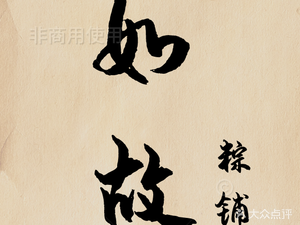 如故
粽铺
非商用使用
大众点评